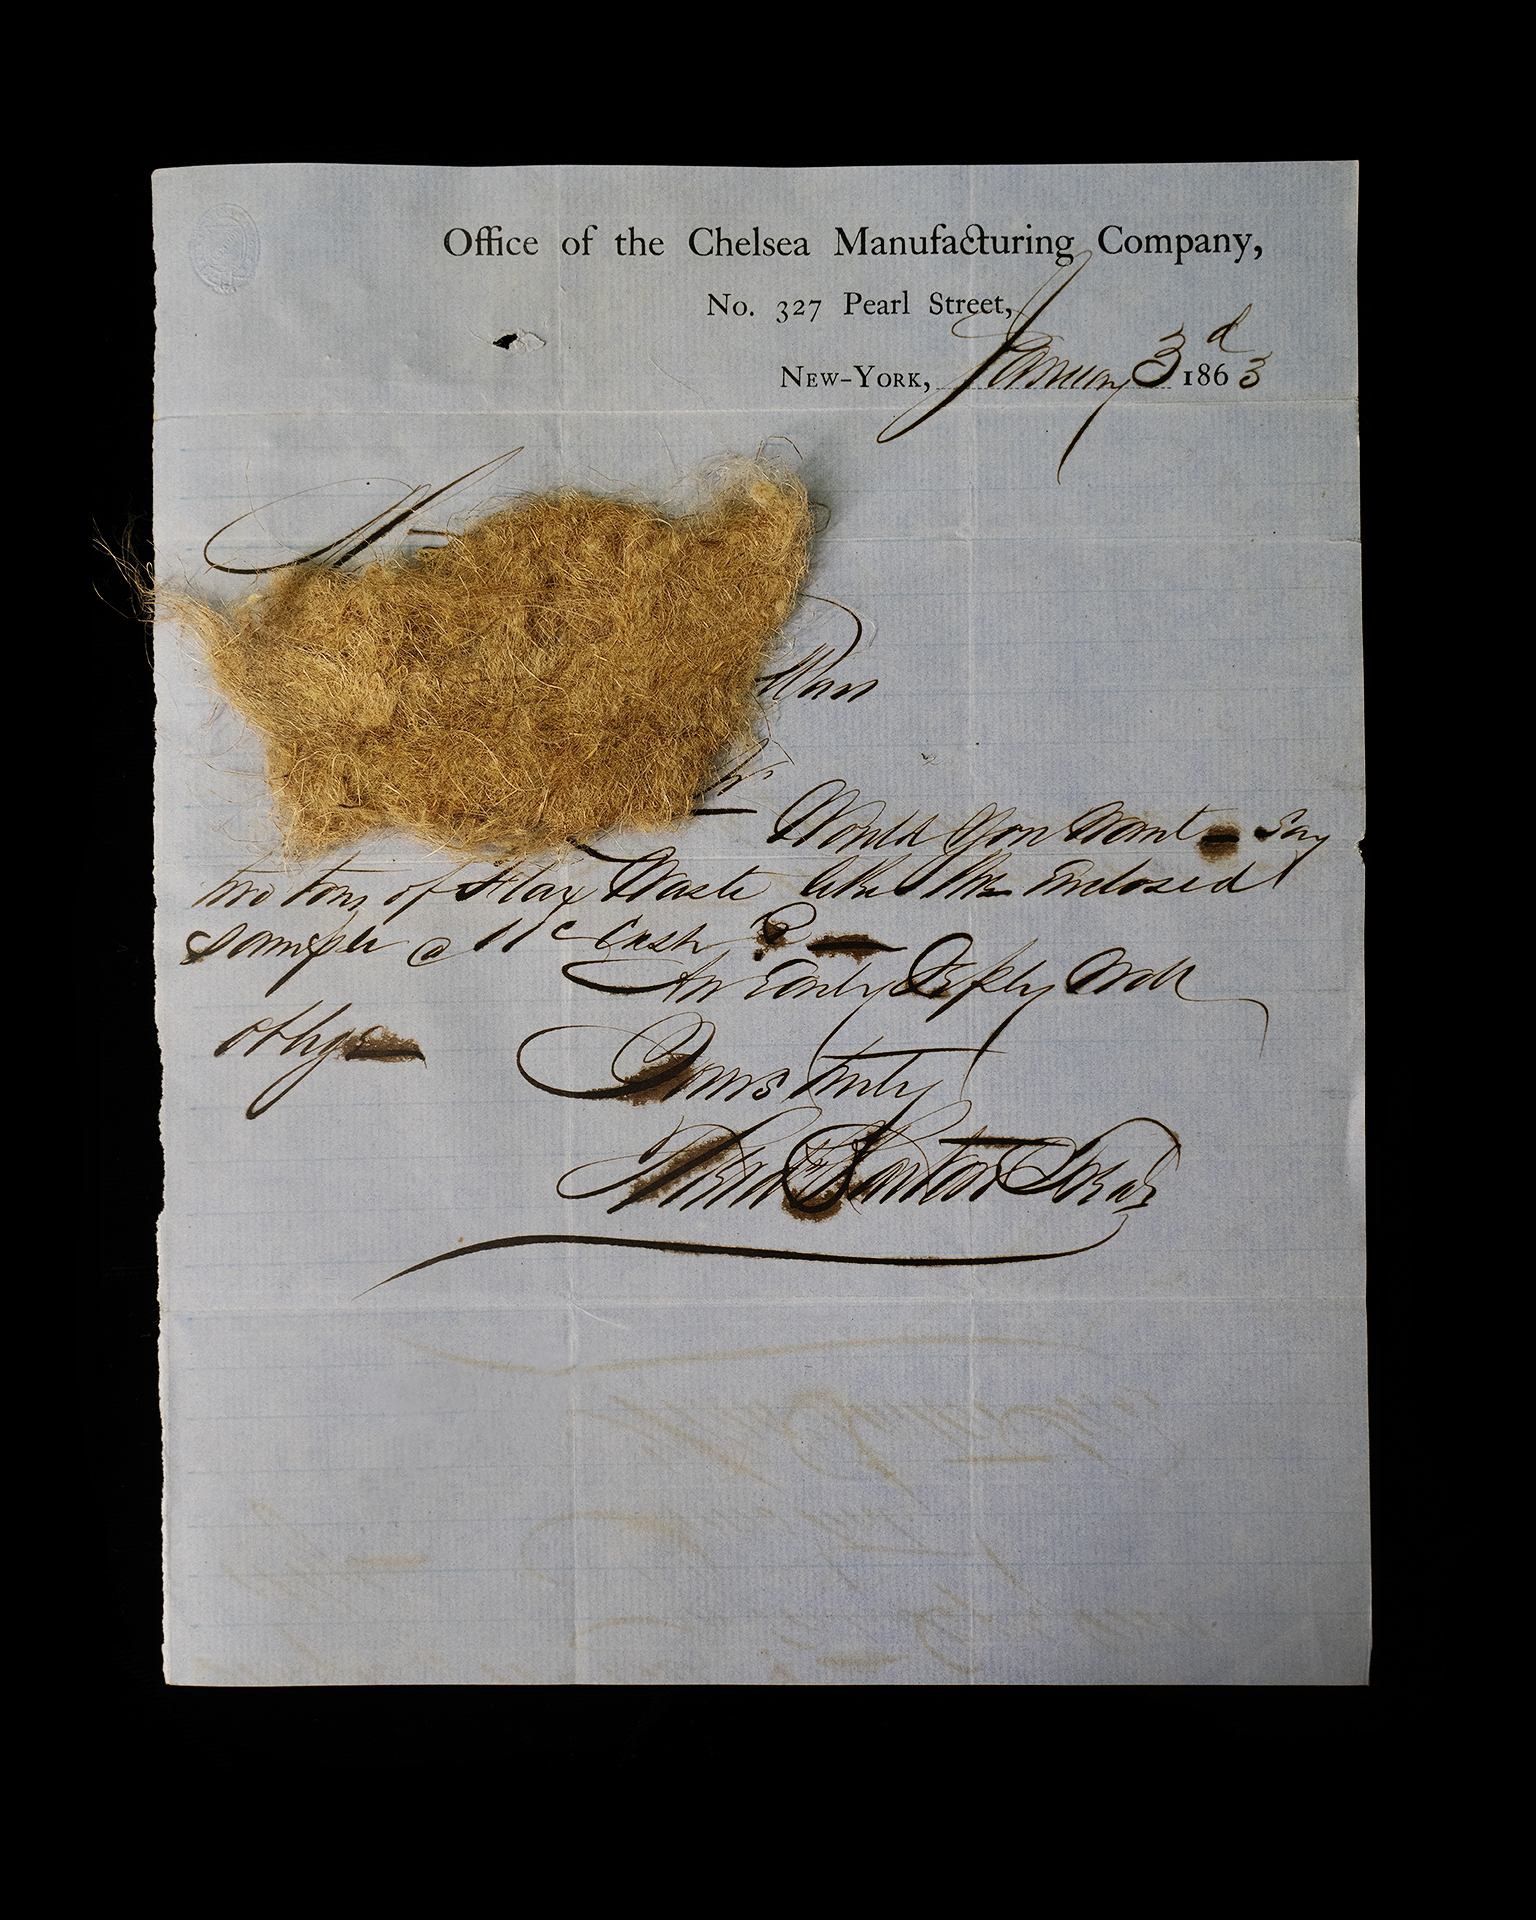 Office of the Chelsea Manufacturing Company,
No. 327 Pearl Street,
New-York, January 3d 1863
Mass
Would You Want — Say
two tons of Flax Waste like the Enclosed
sample @ 11c Cash ? —
An Early Reply Will
oblige —
Yours truly
Barton